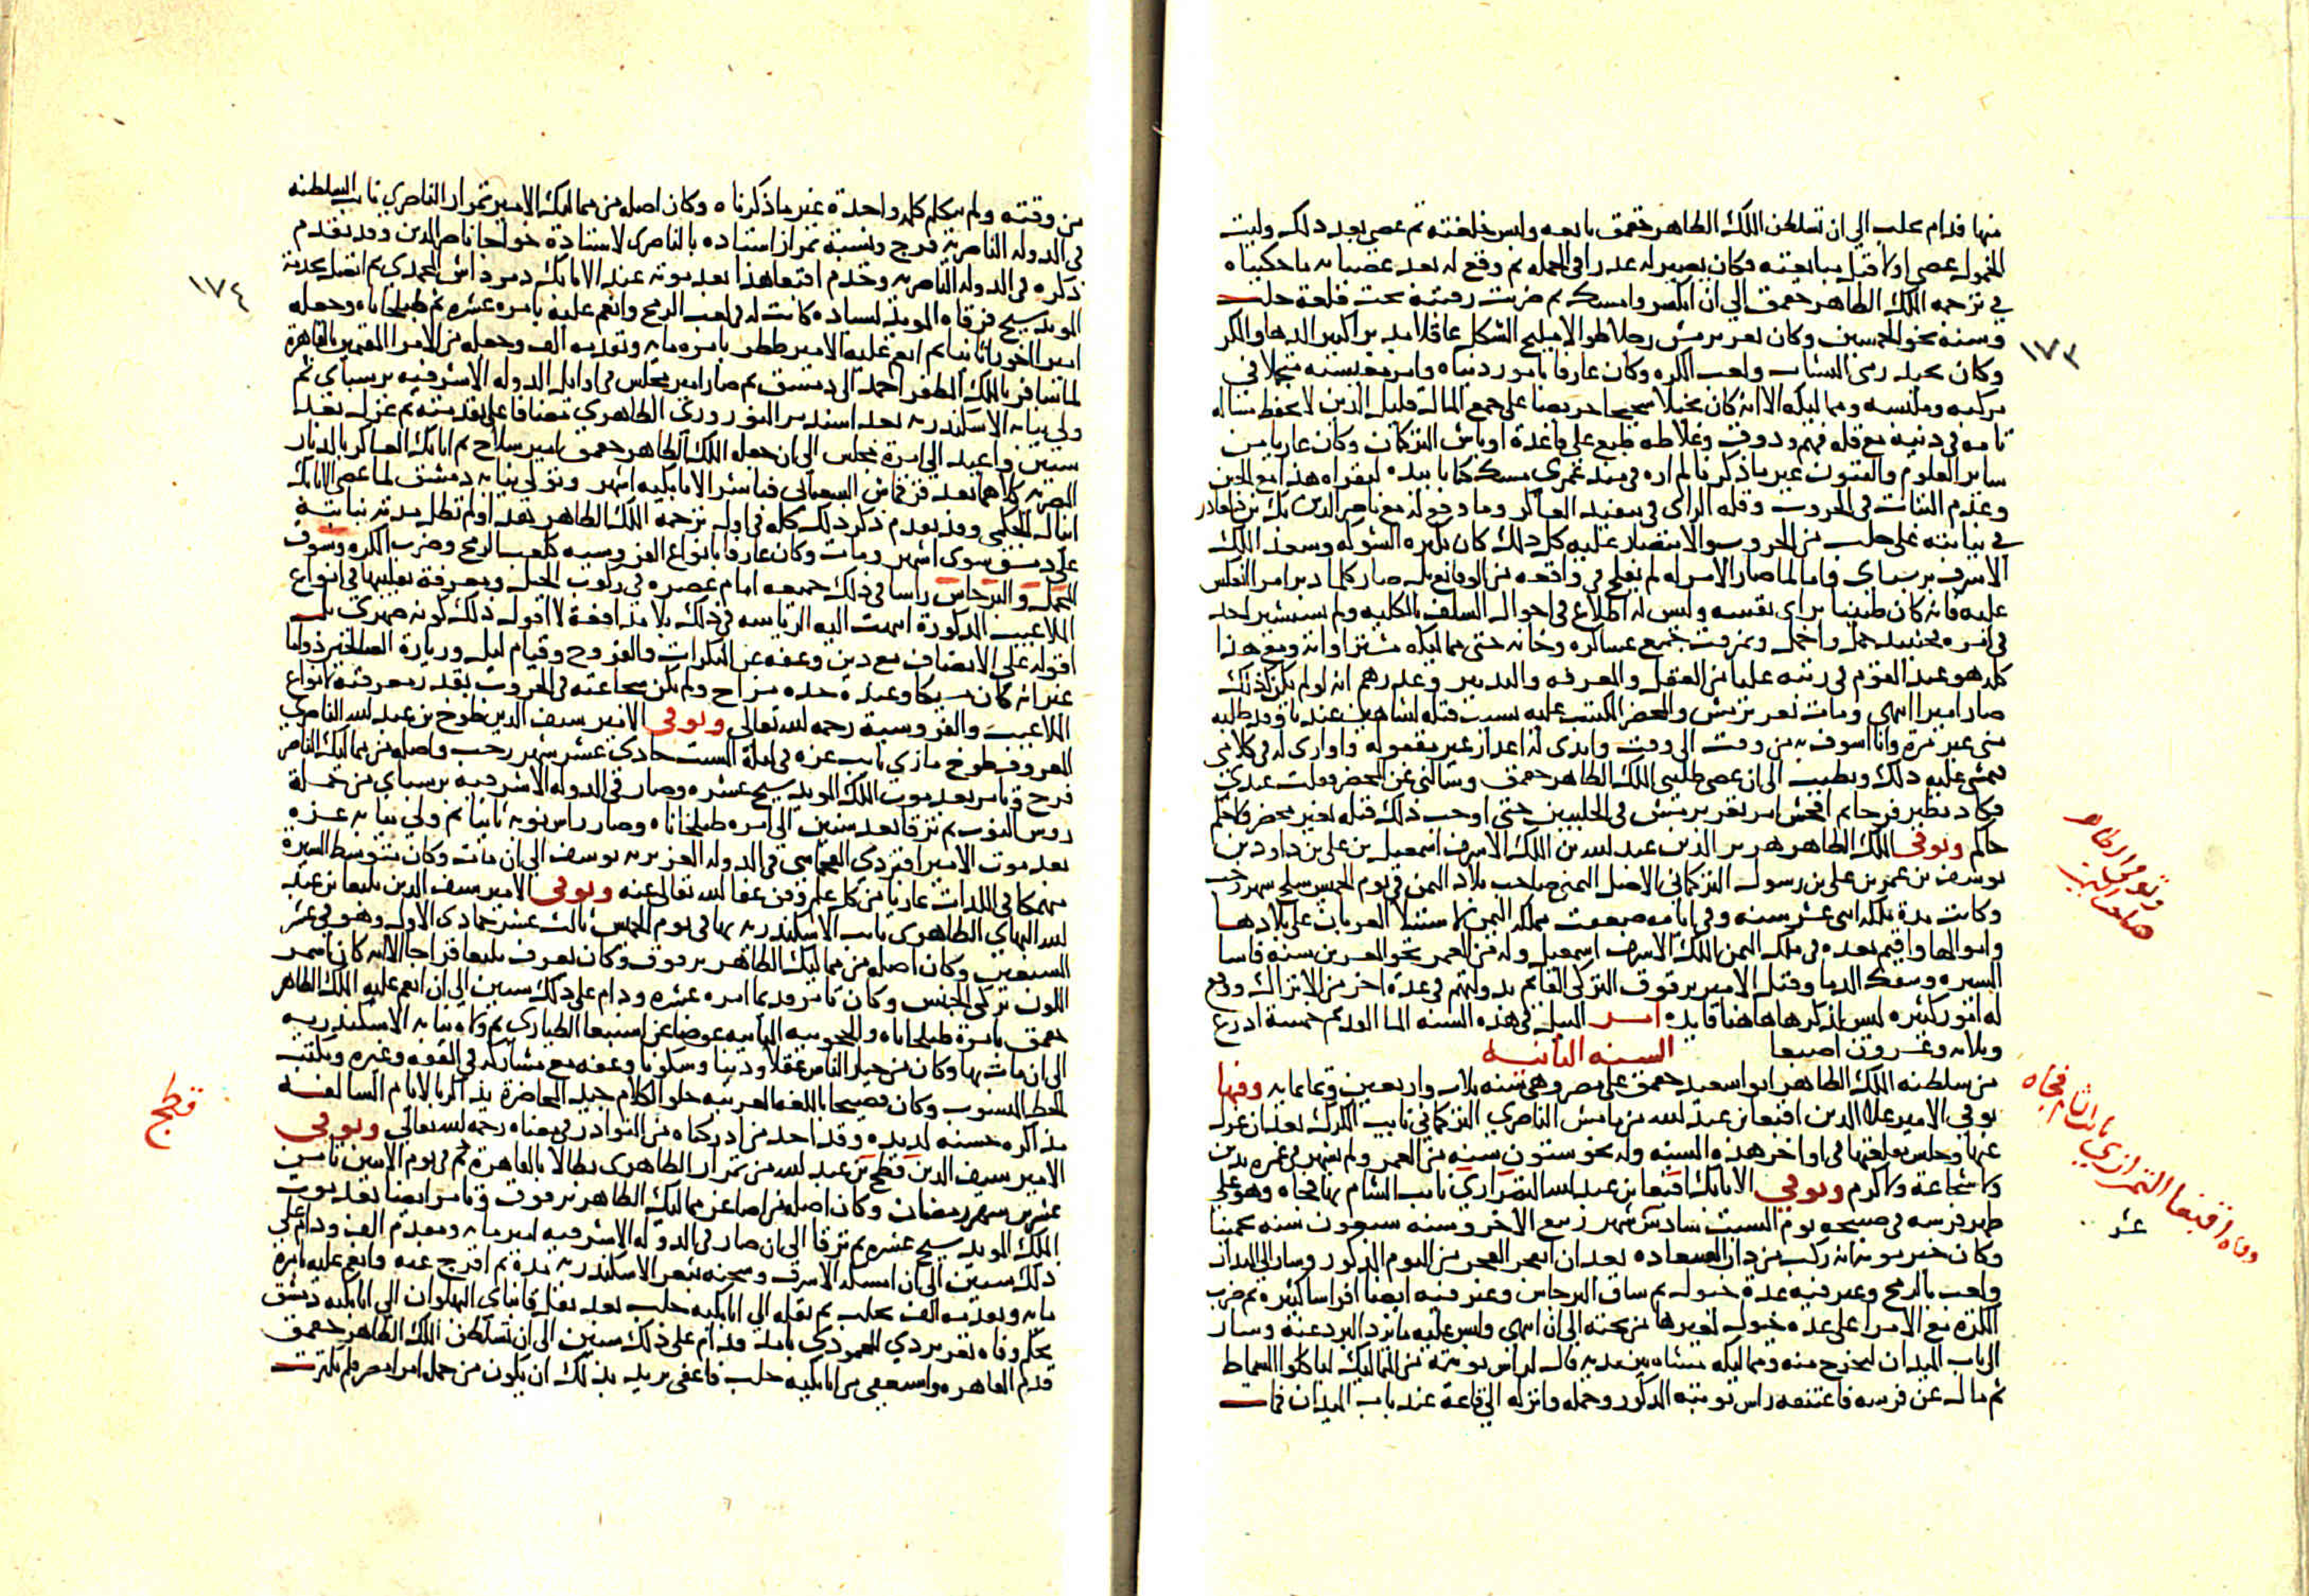 منها فدام بحلب الى ان تسلطن الملك الظاهر جقمق بايعه ولبس خلعته ثم عصى بعد ذلك وليت
المخمول عصى اولا قبل مبايعته فكان يصير له عذر فى الجملة ثم وقع له بعد عصيانه ما حكيناه
فى ترجمة الملك الظاهر جقمق الى ان انكسر وامسك ثم ضربت رقبته تحت قلعة حلب
وسنه نحو الخمسين وكان تغرى برمش رجلا طوالا مليح الشكل عاقلا مدبرا كثير الدها والمكر
وكان يجيد رمى النشاب ولعب الكره وكان عارفا بامور دنياه وامر معيشته متجملا فى
مركبه وملبسه ومماليكه الا انه كان بخيلا شحيحا حريصا على جمع المال قليل الدين لا يحفظ مسالة
تامة فى دينه مع قلة فهم وذوق وغلاظه طبع على قاعدة اوباش التركمان وكان عاريا من
ساير العلوم والفنون غير ما ذكرنا لم اره فى منذ عمرى مسك كتابا بيده ليقراه هذا مع الجبن
وعدم الثبات فى الحروب وقلة الراى فى تنفيذ العساكر وما وقع له مع ناصر الدين بك بن دلغادر
فى نيابته على حلب من الحروب والانتصار عليه كل ذلك كان بكثرة الشوكة وسعد الملك
الاشرف برسباى واما لما صار الامر له لم يفلح فى واقعة من الوقايع بل صار كلما دبر امرا انعكس
عليه فانه كان ظنينا براى نفسه وليس له اطلاع فى احوال السلف بالكلية ولم يستشر احد
فى امره فحينئذ خمل واخمل وتمزقت جميع عساكره وخانه حتى مماليكه مشتراواته ومع هذا
كله هو عند القوم فى رتبة عليا من العقل والمعرفة والتدبير وعذرهم انه لو لم يكن كذلك
ما صار اميرا انتهى ومات تغرى برمش والمحضر المكتتب عليه بسبب قتله لشاهين عندنا وقد طلبه
منى غير مرة وانا اسوف به من وقت الى وقت وابدى له اعذار غير مقبولة واوارى له فى كلامى
فمشى عليه ذلك وبطيب الى ان عصى طلبنى الملك الظاهر جقمق وسالنى عن المحضر فقلت عندى
فكاد يطير فرحا ثم افحش امر تغرى برمش فى الحلبيين حتى اوجب ذلك قتله بغير محضر ولا حكم
حاكم وتوفى الملك الظاهر هزبر الدين عبد الله بن الملك الاشرف اسمعيل بن على بن داود بن
يوسف بن عمر بن على بن رسول التركمانى الاصل اليمنى صاحب بلاد اليمن فى يوم الخميس سلخ شهر رجب
وكانت مدة ملكه اثنى عشر سنه وفى ايامه ضعفت مملكة اليمن لاستيلا العربان على بلادها
واموالها واقيم بعده فى ملك اليمن الملك الاشرف اسمعيل وله من العمر نحو العشرين سنة فاسا
السيره وسفك الدما وقتل الامير برقوق التركى القايم بدولتهم فى عدة اخر من الاتراك ووقع
له امور كثيره ليس لذكرها هاهنا فايدة امر النيل فى هذه السنه الما القديم خمسة اذرع
وثلاثة وعشرون اصبعا السنه الثانيه
من سلطنة الملك الظاهر ابو سعيد جقمق على مصر وهى سنه ثلاث واربعين وثمانمايه وفيها
توفى الامير علا الدين اقبغا بن عبد الله من مامش الناصرى التركمانى نايب الكرك بعد ان عزل
عنها وحبس بقلعتها فى اواخر هذه السنه وله نحو ستون سنه من العمر ولم يشهر فى عمره بدين
ولا شجاعة ولا كرم وتوفى الاتابك اقبغا بن عبد الله التمرازى نايب الشام بها فجاه وهو على
ظهر فرسه فى صبيحة يوم السبت سادس شهر ربيع الاخر وسنه سبعون سنه تخمينا
وكان خبر موته انه ركب من دار السعاده بعد ان انفجر الفجر من اليوم المذكور وسار الى الميدان
ولعب بالرمح وغير فيه عدة خيول ثم ساق البرجاس وغير فيه ايضا افراسا كثيره ثم ضرب
الكرة مع الامرا على عدة خيول لغيرها من تحته الى ان انتهى وليس عليه ما يرد البرد عنه وسار
الى باب الميدان ليخرج منه ومماليكه مشاه بين يديه فقال لراس نوبته مر المماليك لياكلوا السماط
ثم مال عن فرسه فاعتنقه راس نوبته المذكور وحمله وانزله الى قاعة عند باب الميدان فمات
١٧٣
وتوفى الظاهر
صاحب اليمن
وفاه اقبغا التمرازى نايب الشام فجاه
عشر
من وقته ولم يتكلم كلمة واحدة غير ما ذكرناه وكان اصله من مماليك الامير تمراز الناصرى نايب السلطنه
فى الدوله الناصريه فرج ونسبة تمراز استاده بالناصرى لاستاده خواجا ناصر الدين وقد تقدم
ذكره فى الدولة الناصريه وخدم اقبغا هذا بعد موته عند الاتابك دمرداش المحمدى ثم اتصل بخدمة
المويد شيخ فرقاه المويد لسيادة كانت له فى لعب الرمح وانعم عليه بامره عشره ثم طبلخاناه وجعله
امير اخور ثانيا ثم انعم عليه الامير ططر بامره مايه وتقدمه الف وجعله من الامرا المقيمين بالقاهرة
لما سافر بالملك المظفر احمد الى دمشق ثم صار امير مجلس فى اوايل الدوله الاشرفيه برسباى ثم
ولى نيابة الاسكندريه بعد اسندمر النورورى الظاهرى مضافا على تقدمته ثم عزل بعد
سنين واعيد الى امرة مجلس الى ان جعله الملك الظاهر جقمق امير سلاح ثم اتابك العساكر بالديار
المصريه كلاهما بعد قرقماش الشعبانى فباشر الاتابكيه اشهر وتولى نيابه دمشق لما عصى الاتابك
اينال الجكمى وقد تقدم ذكر ذلك كله فى اول ترجمة الملك الظاهر بعد اولم تطل مدته نيابته
على دمشق سوى اشهر ومات وكان عارفا بانواع الفروسيه كلعب الرمح وضرب الكره وسوق
المحمل والبرجاس راسا فى ذلك جميعه امام عصره فى ركوب الخيل ومعرفة تقليبها فى انواع
الملاعيب المذكورة انتهت اليه الرياسه فى ذلك بلا مدافعة لا اقول ذلك لكونه صهرى بل
اقوله على الانصاف مع دين وعفه عن المنكرات والفروج وقيام ليل وزيارة الصالحين دواما
غير انه كان مسيكا وعنده حده مزاج ولم تكن شجاعته فى الحروب بقدر معرفته بانواع
الملاعيب والفروسية رحمه الله تعالى وتوفى الامير سيف الدين طوخ بن عبد الله الناصرى
المعروف طوخ مازى نايب غزه فى ليلة السبت حادى عشر شهر رجب واصله من مماليك الناصر
فرج وتامر بعد موت الملك المويد شيخ عشره وصار فى الدوله الاشرفيه برسباى من جملة
روس النوب ثم ترقا بعد سنين الى امره طبلخاناه وصار راس نوبه ثانيا ثم ولى نيابة غزه
بعد موت الامير اقبردى القجماسى فى الدوله العزيزيه يوسف الى ان مات وكان متوسط السيرة
منهمكا فى اللذات عاريا من كل علم وفن عفا الله تعالى عنه وتوفى الامير سيف الدين يلبغا بن عبد
الله البهاى الظاهرى نايب الاسكندريه بها فى يوم الخميس ثالث عشر جمادى الاولى وهو فى عشر
السبعين وكان اصله من مماليك الظاهر برقوق وكان يعرف بيلبغا قراجا لانه كان اسمر
اللون تركى الجنس وكان تامر قديما امره عشره ودام على ذلك سنين الى ان انعم عليه الملك الظاهر
جقمق بامرة طبلخاناه والحجوبيه الثانيه عوضا عن اسنبغا الطيارى ثم ولاه نيابه الاسكندريه
الى ان مات بها وكان من خيار الناس عقلا ودينا وسكونا وعفه مع مشاركه فى الفقه وغيره ويكتب
الخط المنسوب وكان فصيحا باللغه العربيه حلو الكلام جيد المحاضرة يذاكر بالايام السالفه
مذاكره حسنه لذيذه وقد احد من ادركناه من النوادر فى معناه رحمه الله تعالى وتوفى
الامير سيف الدين قطج بن عبد الله من تمراز الظاهرى بطالا بالقاهرة ثم فى يوم الاثنين ثامن
عشرين شهر رمضان وكان اصله من اصاغر مماليك الظاهر برقوق وتامر ايضا بعد موت
الملك المويد شيخ عشره ثم ترقا الى ان صار فى الدوله الاشرفيه امير مايه ومقدم الف ودام على
ذلك سنين الى ان امسكه الاشرف وسجنه بثغر الاسكندريه مدة ثم افرج عنه وانعم عليه بامرة
مايه وتقدمه الف بحلب ثم نقله الى اتابكيه حلب بعد نقل قانباى البهلوان الى اتابكيه دمشق
بحكم وفاه تغرى بردى المحمودى بامد فدام على ذلك سنين الى ان تسلطن الملك الظاهر جقمق
قدم القاهره واستعفى من اتابكيه حلب فاعفى يريد بذلك ان يكون من جملة امرا مصر فلم يكترث
١٧٤
قطج